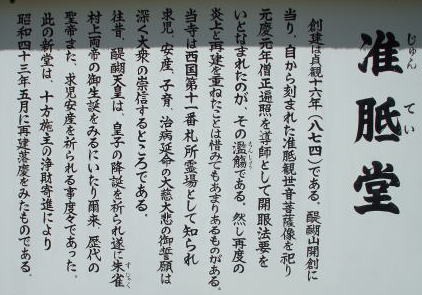 准胝堂
じゅん てい
創建は貞観十六年(八七四)である。醍醐山開創に
当り、自から刻まれた准胝観世音菩薩像を祀り
元慶元年僧正遍照を導師として開眼法要を
いとなまれたのが、その濫觴である。然し再度の
らんしょう
炎上と再建を重ねたことは惜みてもあまりあるものがある。
当寺は西国第十一番札所霊場として知られ
求児、安産、子育、治病延命の大慈大悲の御誓願は
深く大衆の崇信するところである。
往昔、醍醐天皇は、皇子の降誕を祈られ遂に朱雀
すじゃく
村上両帝の御生誕をみるにいたり爾来、歴代の
聖帝また、求児安産を祈られる事度々であった。
此の新堂は、十方施主の浄財寄進により
昭和四十三年五月に再建落慶をみたものである。